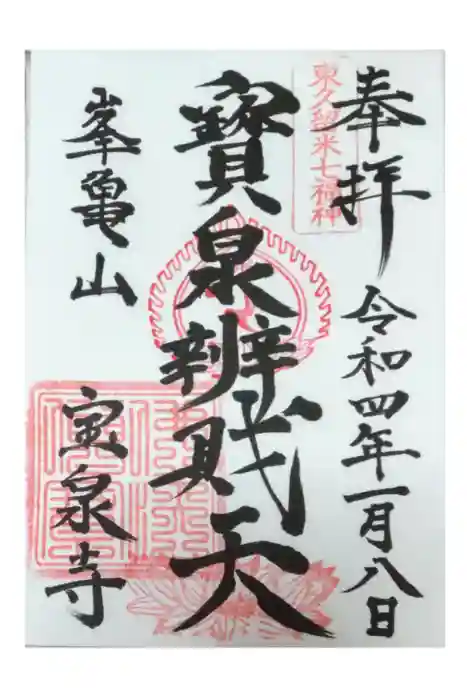 奉拝
令和四年一月八日
東久留米七福神
寶泉辨戝天
峯亀山
宝泉寺